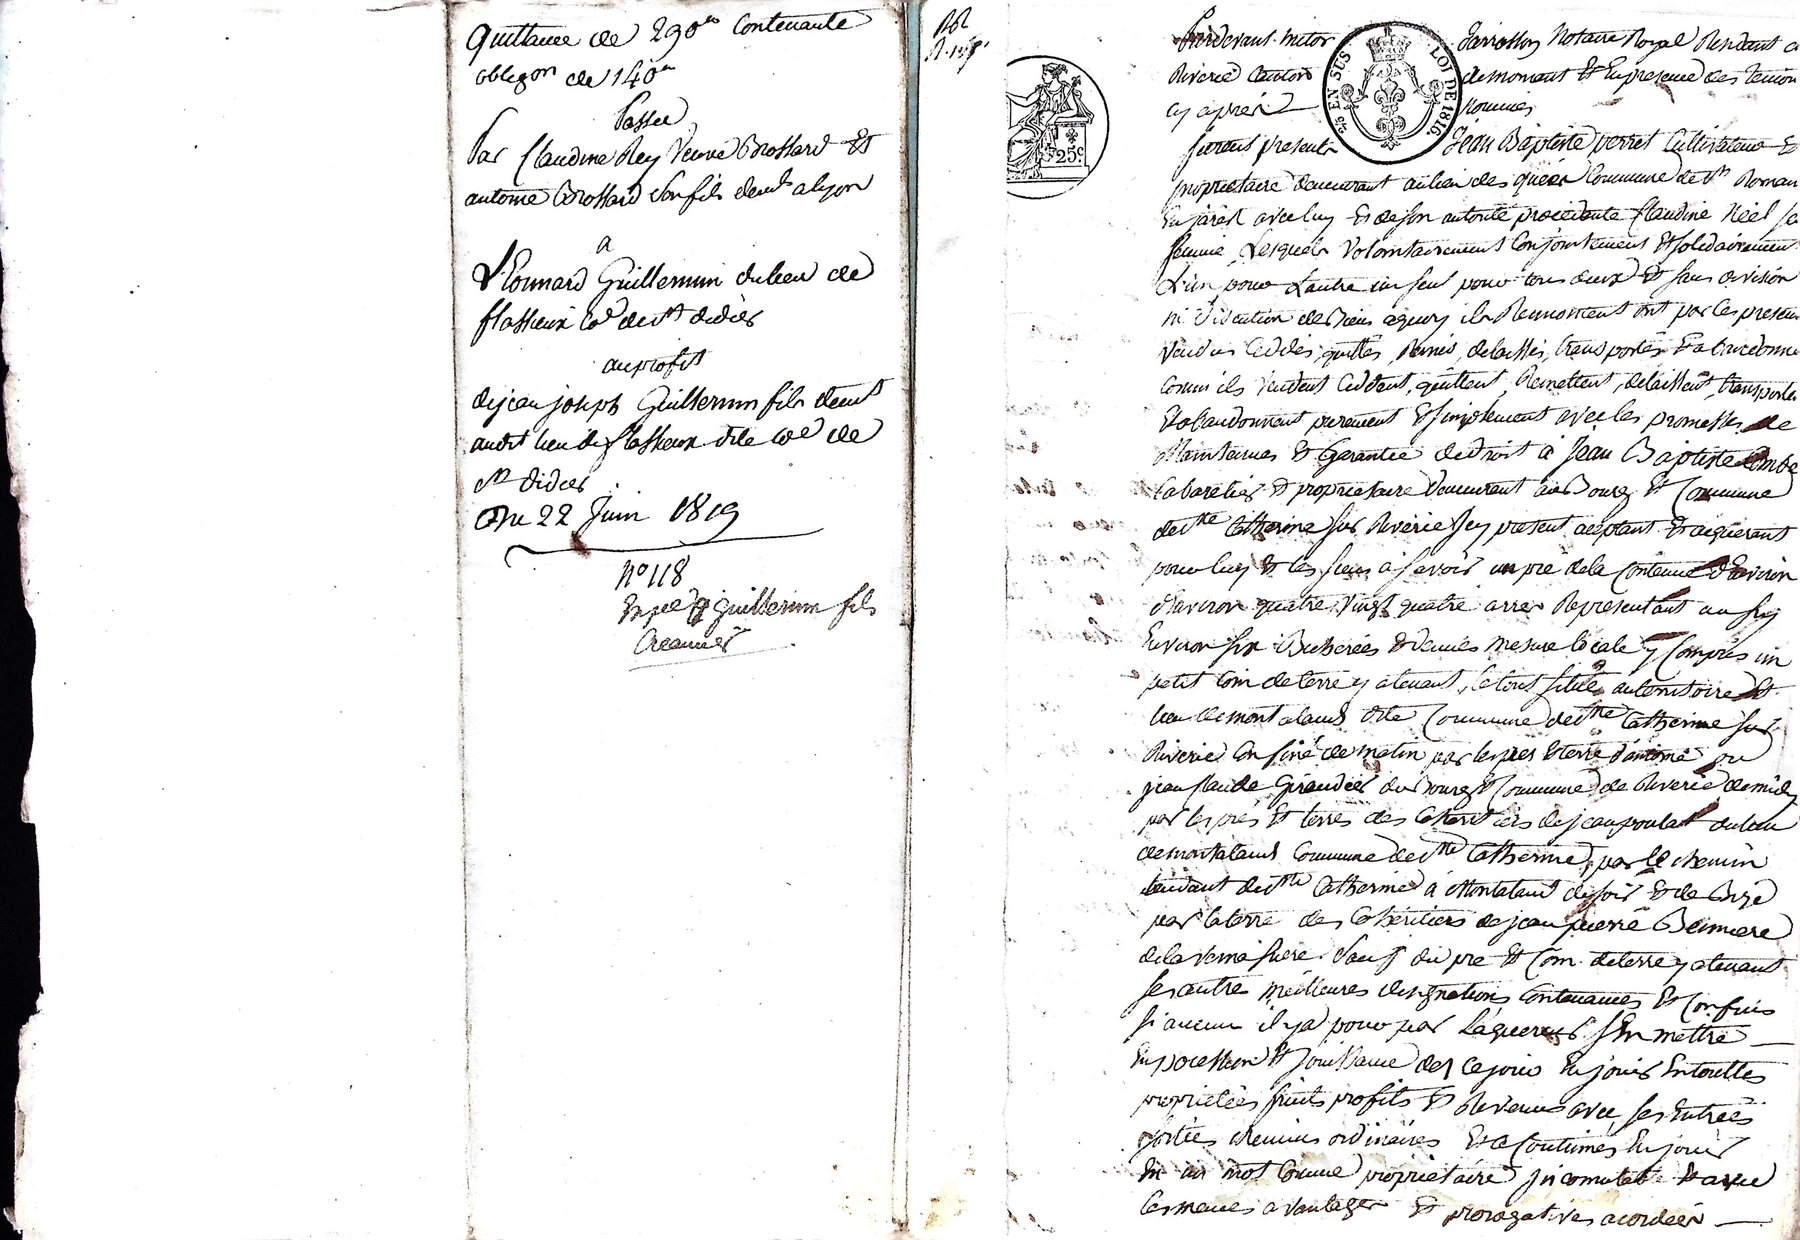 Quittance de 290# Contenante
obligon de 140#
Passée
Par Claudine Rey Veuve Brossard Et
antoine Brossard Son fils demt a lyon
a
Léonnard Guillermin du lieu de
flassieux Cne de st didier
au profit
de jean joseph Guillermin fils demt
audit lieu de flassieux dite Cne de
st didier
Du 22 Juin 1819
N° 118
Exped guillermin fils
Pardevant
Notaire Royal Résidant a
Riverie Canton
de mornant Et En presence des temoin
cy après
nommés
25 EN SUS
LOI DE 1816.
25c
furent presents
Jean Baptiste verret Cultivateur Et
propriétaire demeurant au lieu des Commune de st Romain
En jarest avec luy Et de son autorité procédente Claudine Néel sa
femme, Lesquels Volontairement Conjointement Et Solidairement
L'un pour L'autre un seul pour tous deux Et sans division
ni discution de Biens a quoy ils Renoncent ont par les presente
Vendus Cédés, quittés Remis, delaissés, transportés Et abandonné
Comm'ils Vendent Cédent, quittent, Remettent, delaissent, transporte
Et abandonnent purement Et simplement avec les promesses de
Maintenues Et Garantie de Droit à Jean Baptiste Combe
Cabaretier Et propriétaire Demeurant au Bourg Et Commune
de ste Catherine sur Riverie Icy present aceptant Et aquerant
pour luy Et les siens à savoir un pré de la Contenue D'Environ
d'environ quatre vingt quatre arres Representant an
Environ six Bicherées Et demies mesure locale y Compris un
petit Coin de terre y atenant, le tout situé au territoire Et
lieu de montaland dite Commune de ste Catherine sur
Riverie Confiné de matin par les prés Et terre d'antoine ou
jean claude Giraudier du Bourg Et Commune de Riverie de midy
par les prés Et terres des Cohéritiers de jean poulat du lieu
de montaland Commune de ste Catherine, par le chemin
tendant de ste Catherine à Montaland de soir Et de Bize
par la terre des Cohéritiers de jean pierre
de la Sauf du pré Et Coin de terre y atenant
ses autres meilleures designations Contenances Et Confins
si aucuns il y a pour par L'aquereur S'En mettre
En possession Et Jouissance dès ce jour En jouir En touttes
propriétées fruits profits Et Revenus avec ses Entrées
sorties chemins ordinaires Et a Coutumés En jouir
En un mot Comme propriétaire Incomutable Et avec
Les mêmes avantages Et prérogatives acordées